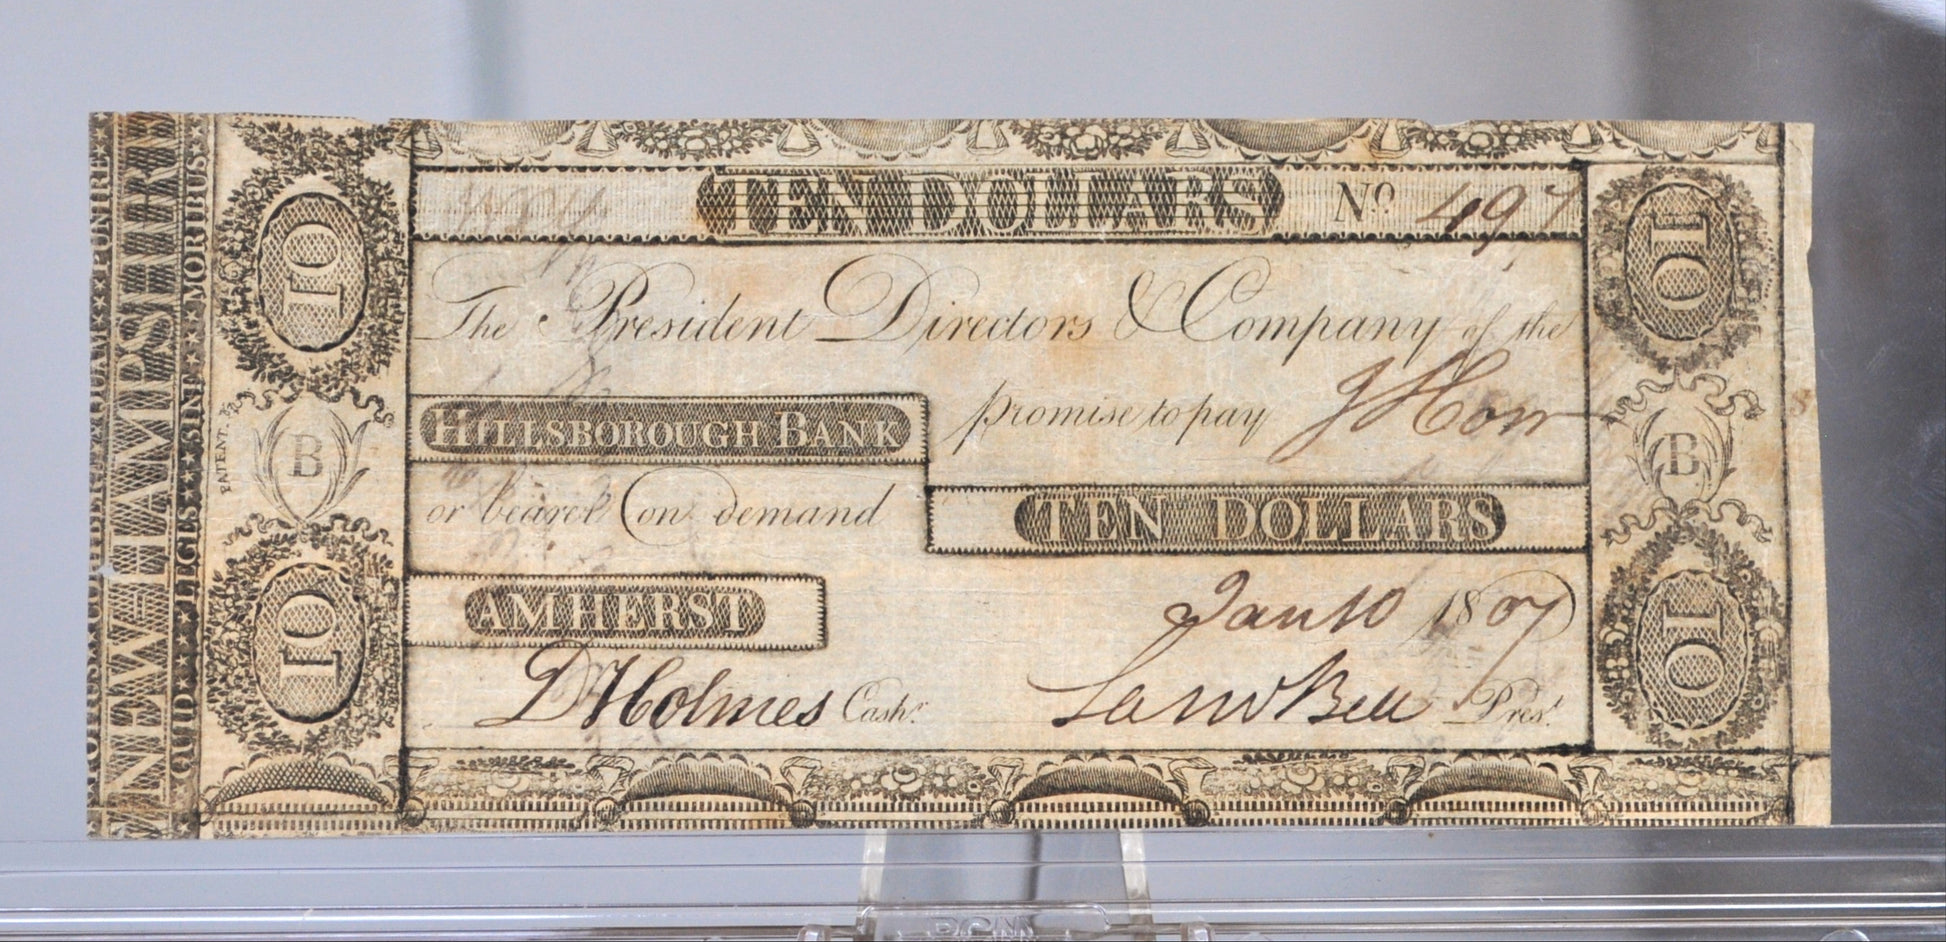 TEN DOLLARS No. 497
The President Directors & Company of the
HILLSBOROUGH BANK promise to pay J How
or bearer on demand TEN DOLLARS
AMHERST Jan 10 1807
D Holmes Cashr. Saml Bell Prest.
NEW-HAMPSHIRE
QUID LEGES SINE MORIBUS
10
10
10
10
B
B
PATENT.